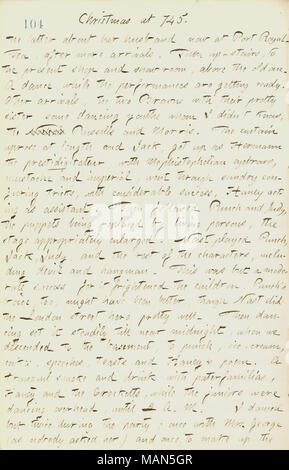 104
Christmas at 745.
the latter about her husband now at Port Royal.
Tea, after more arrivals. Then up-stairs, to
the present shop and show-room, above the old one.
A dance, while the performances are getting ready.
Other arrivals. The two Parnaces with their pretty
sister, some dancing youths whom I didn't know,
the Russells and Morris. The curtain
uprose at length and Jack, got up as Hermann
the prestidigitator with Mephistophelian eyebrows,
mustache and imperial went through sundry con-
juring tricks, with considerable success, Haney act-
ing as assistant. Then followed Punch and Judy,
the puppets being replaced by living persons, the
stage appropriately enlarged. Mast played Punch,
Jack Judy, and the rest of the characters, inclu-
ding devil and hangman. This was but a mode-
rate success for it frightened the children. Punch's
voice, too, might have been better though Mast did
the London street hero pretty well. Then dan-
cing set it steadily till near midnight, when we
descended to the basement, to punch, ice-cream
eats, speeches, toasts and Haney's poem. A
tranquil smoke and drink with paterfamilias,
Haney and the Crocketts, while the juniors were
dancing overhead, until 2 A.M. I danced
but twice during the party; once with Mrs. George
(as nobody asked her) and once, to make up the
alamy
Image ID: MAN5GR
www.alamy.com